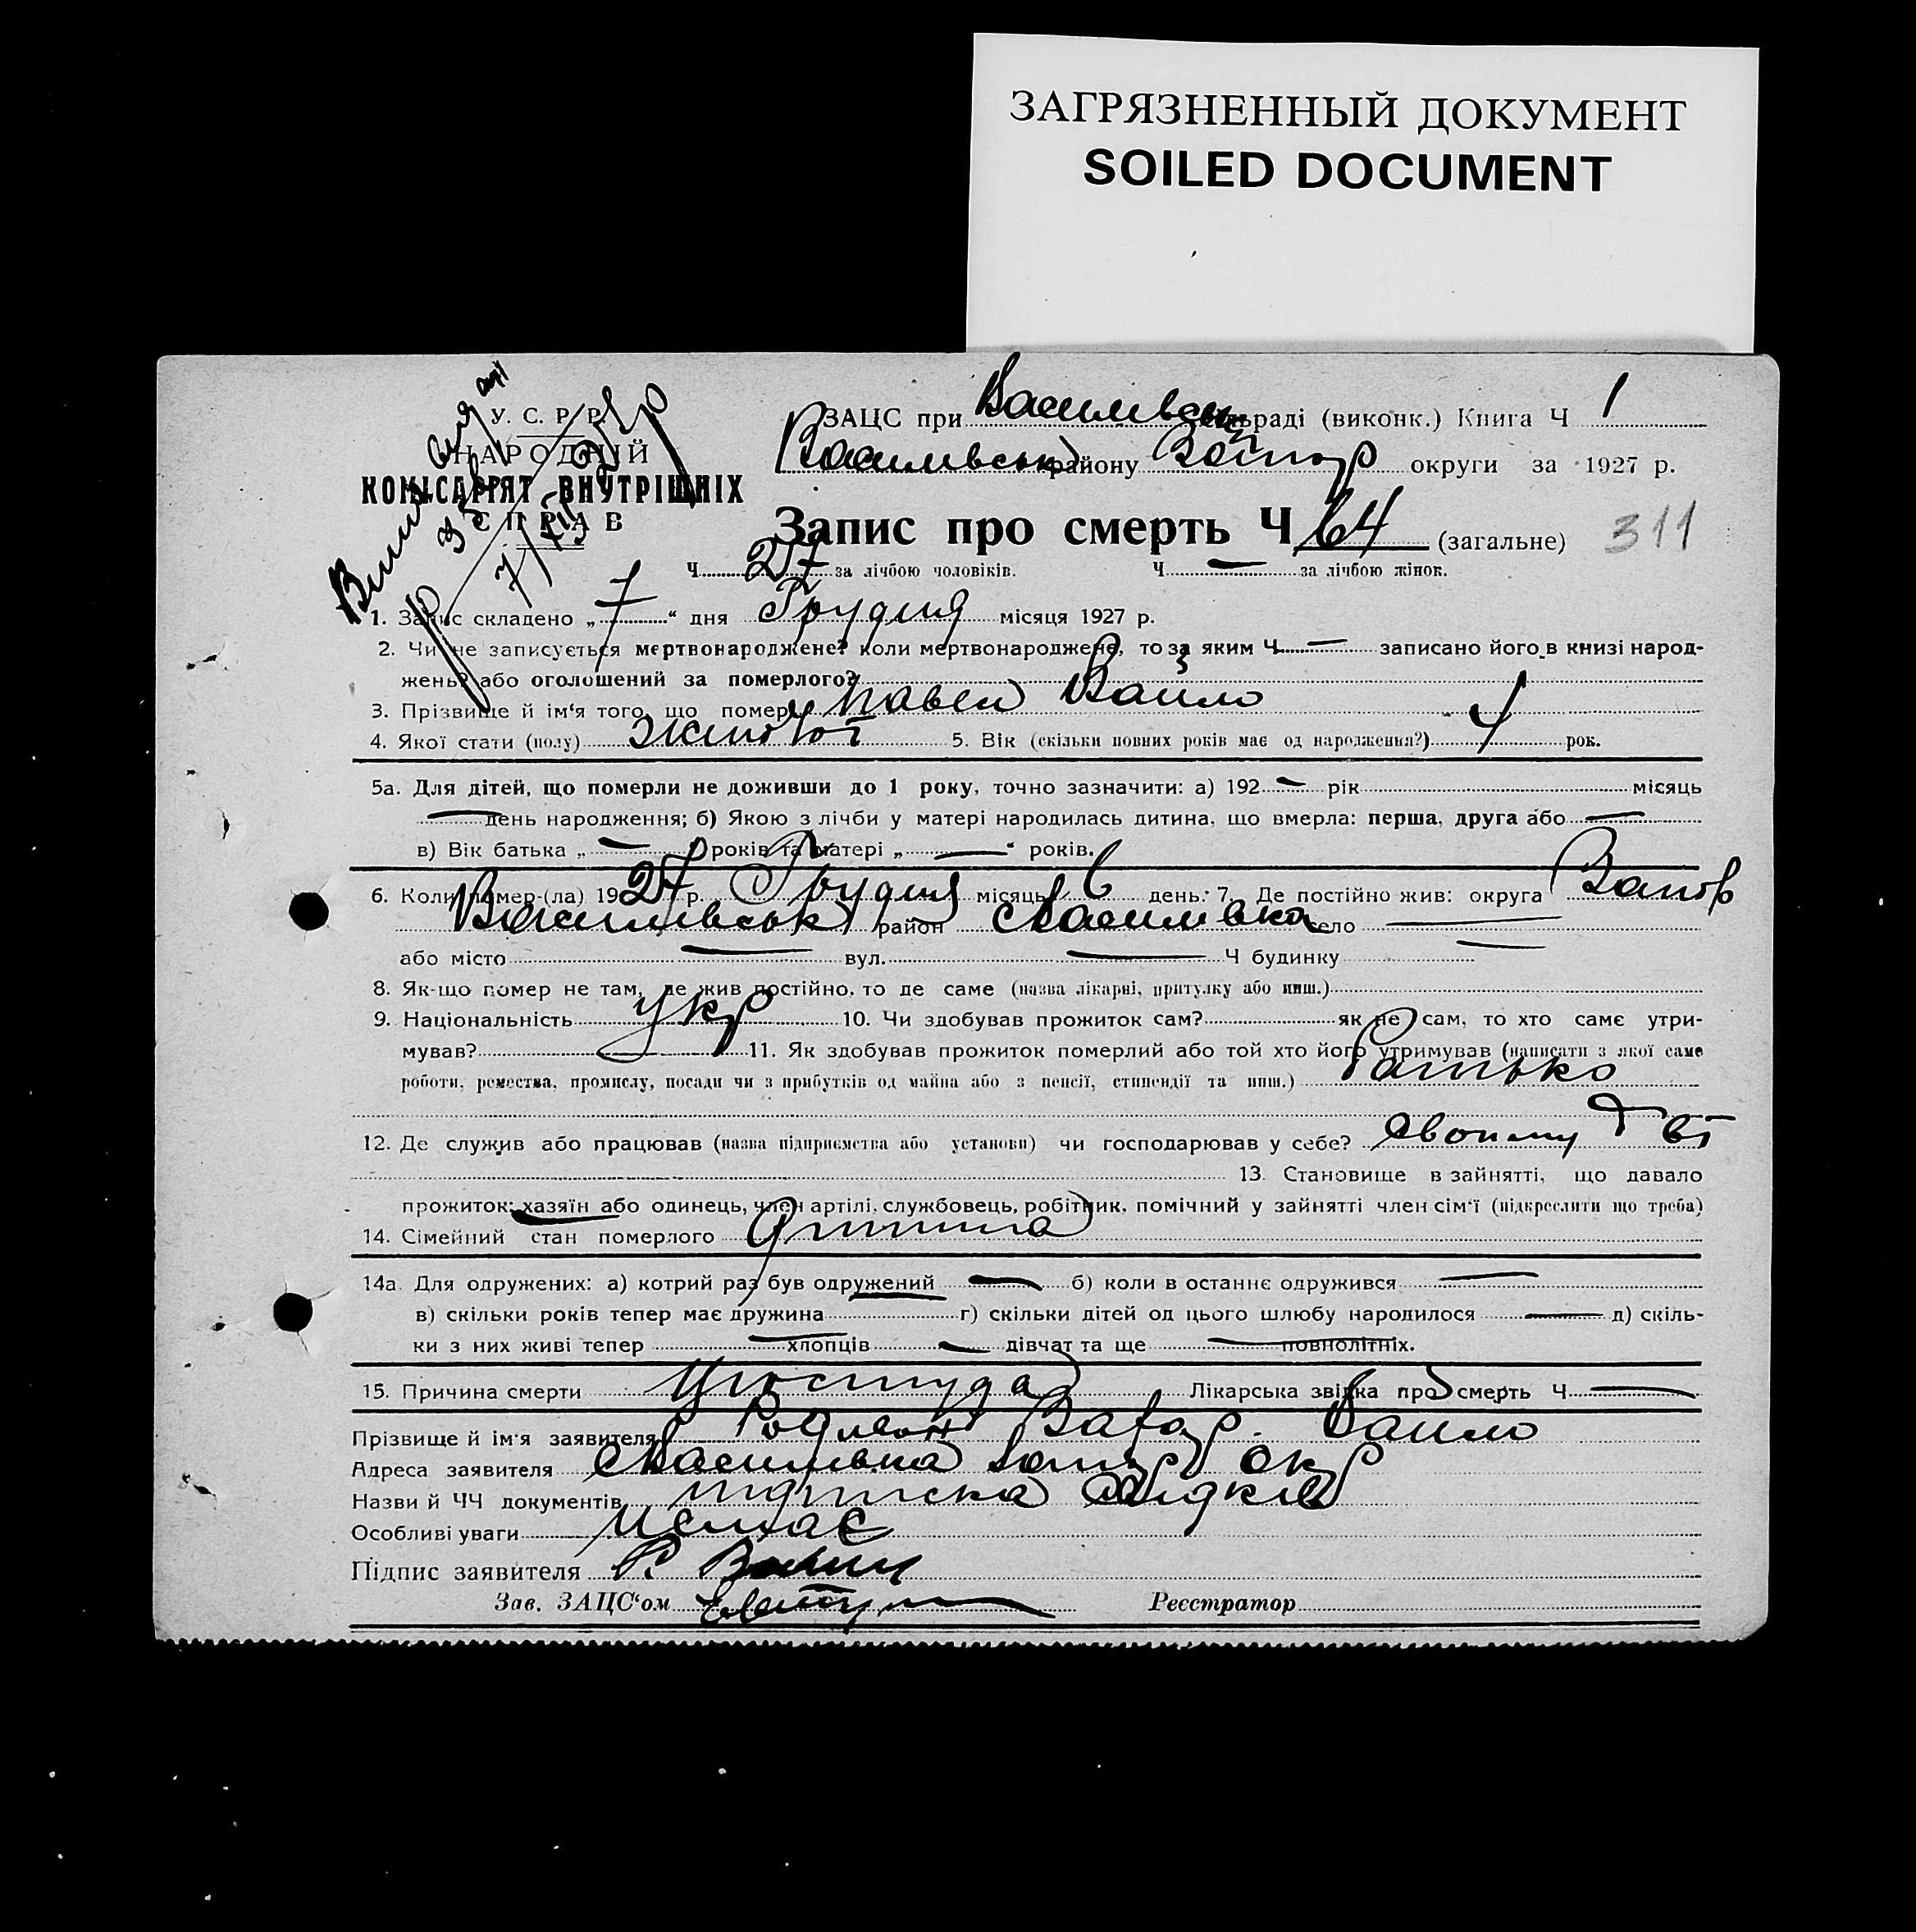 ЗАГРЯЗНЕННЫЙ ДОКУМЕНТ
SOILED DOCUMENT
У. С. Р. Р.
НАРОДНІЙ
КОМІСАРІЯТ ВНУТРІШНІХ
СПРАВ
ЗАЦС при Василівськ раді (виконк.) Книга Ч 1
Василівськ району Запор округи за 1927 р.
Запис про смерть Ч 64 (загальне) 311
Ч 27 за лічбою чоловіків. Ч — за лічбою жінок.
1. Запис складено „ 7 “ дня Грудня місяця 1927 р.
2. Чи не записується мертвонароджене? коли мертвонароджене, то за яким Ч — записано його в книзі народ-
жень? або оголошений за померлого?
3. Прізвище й ім‘я того, що помер Павел
4. Якої стати (полу) 5. Вік (скільки повних років має од народження?) рок.
5а. Для дітей, що померли не доживши до 1 року, точно зазначити: а) 192 — рік місяць
— день народження; б) Якою з лічби у матері народилась дитина, що вмерла: перша, друга або —
в) Вік батька „ — “ років та матері „ — “ років.
6. Коли помер-(ла) 1927 р. Грудня місяць 6 день. 7. Де постійно жив: округа Запор
Василівськ район с Василівка село —
або місто — вул. — Ч будинку —
8. Як-що помер не там, де жив постійно, то де саме (назва лікарні, притулку або инш.)
9. Національність укр 10. Чи здобував прожиток сам? як не сам, то хто саме утри-
мував? 11. Як здобував прожиток померлий або той хто його утримував (написати з якої саме
роботи, ремества, промислу, посади чи з прибутків од майна або з пенсії, стипендії та инш.) Батько
12. Де служив або працював (назва підприємства або установи) чи господарював у себе?
13. Становище в зайнятті, що давало
прожиток: хазяїн або одинець, член артілі, службовець, робітник, помічний у зайнятті член сім‘ї (підкреслити що треба)
14. Сімейний стан померлого Дитина
14а. Для одружених: а) котрий раз був одружений — б) коли в останнє одружився —
в) скільки років тепер має дружина г) скільки дітей од цього шлюбу народилося — д) скіль-
ки з них живі тепер — хлопців — дівчат та ще — повнолітніх.
15. Причина смерти простуда Лікарська звідка про смерть Ч —
Прізвище й ім‘я заявителя Родион Захар.
Адреса заявителя с Василівка Запор окр
Назви й ЧЧ документів
Особливі уваги Немає
Підпис заявителя Р.
Зав. ЗАЦС‘ом Реєстратор